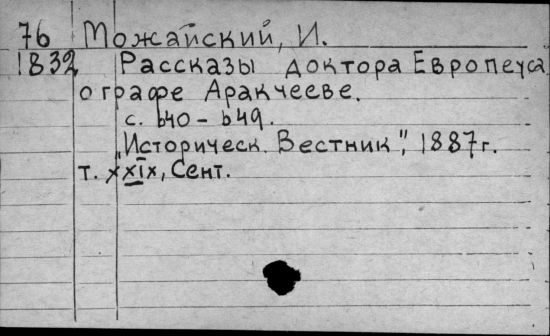 76 Можайский, И.
1832 Рассказы доктора Европеуса
о графе Аракчееве.
с. 640-649.
„Историческ. Вестник", 1887г.
т. XXIX, Сент.